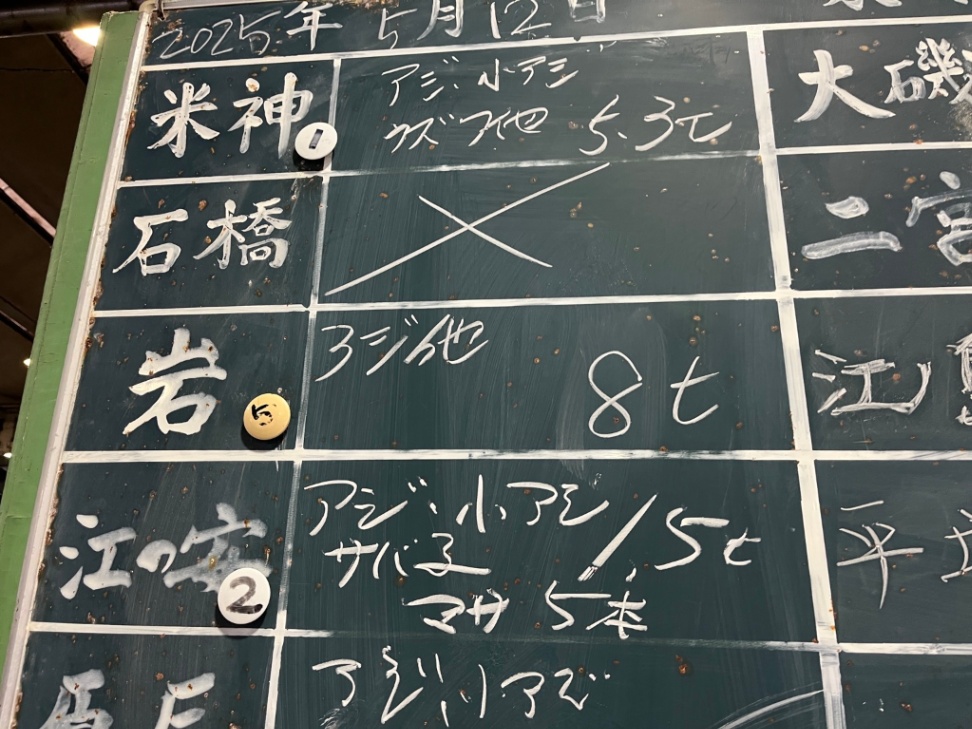 2025年 5月12日
米神
1
アジ・小アジ
ウズワ他 5.3t
大磯
石橋
×
二宮
岩
5
アジ他
8t
江
江の安
2
アジ・小アジ
サバ子
15t
マサ 5本
平
アジ・小アジ